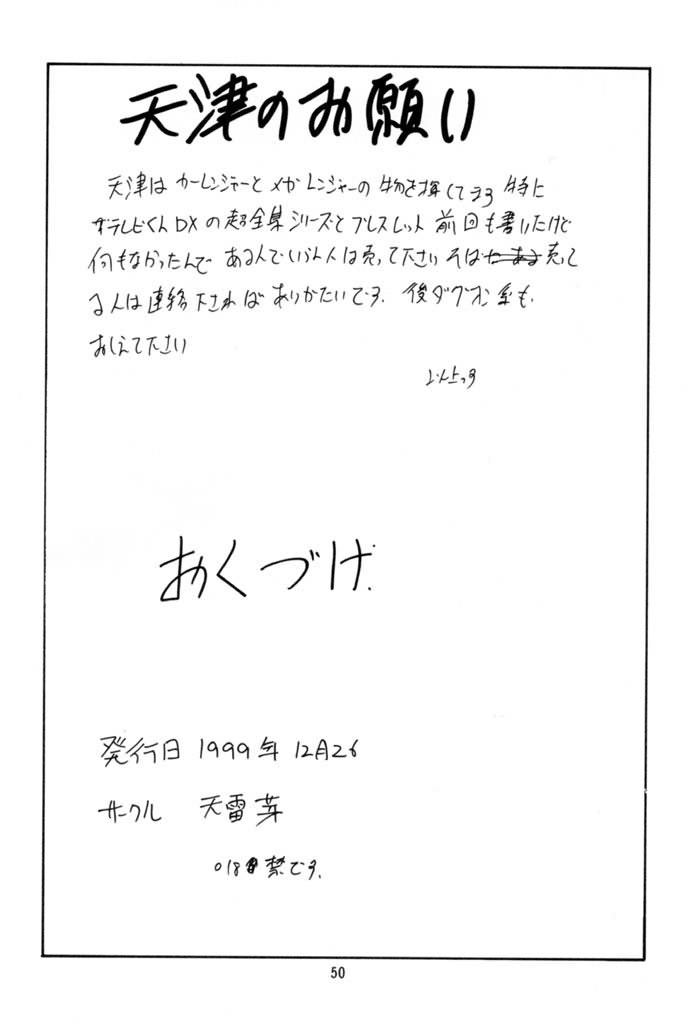 天津のお願い
天津は カーレンジャーと メガレンジャーの 物を探してます 特に
ザテレビくんDXの超全集シリーズとブレスレット 前回も書いたけど
何もなかったんで あるんでいらん人は売って下さい そば 売って
る人は連絡下されば ありがたいです. 後ダグオン系も.
おしえて下さい
以上っす
おくづけ.
発行日 1999年 12月26
サークル 天雷芽
○18 禁です.
50